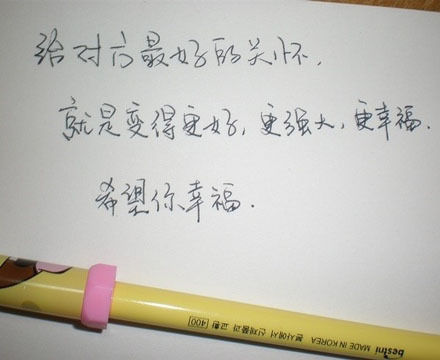 给对方最好的关怀,
就是变得更好,更强大,更幸福.
希望你幸福.
bestni MADE IN KOREA 본사에서 신제품과 교환 400